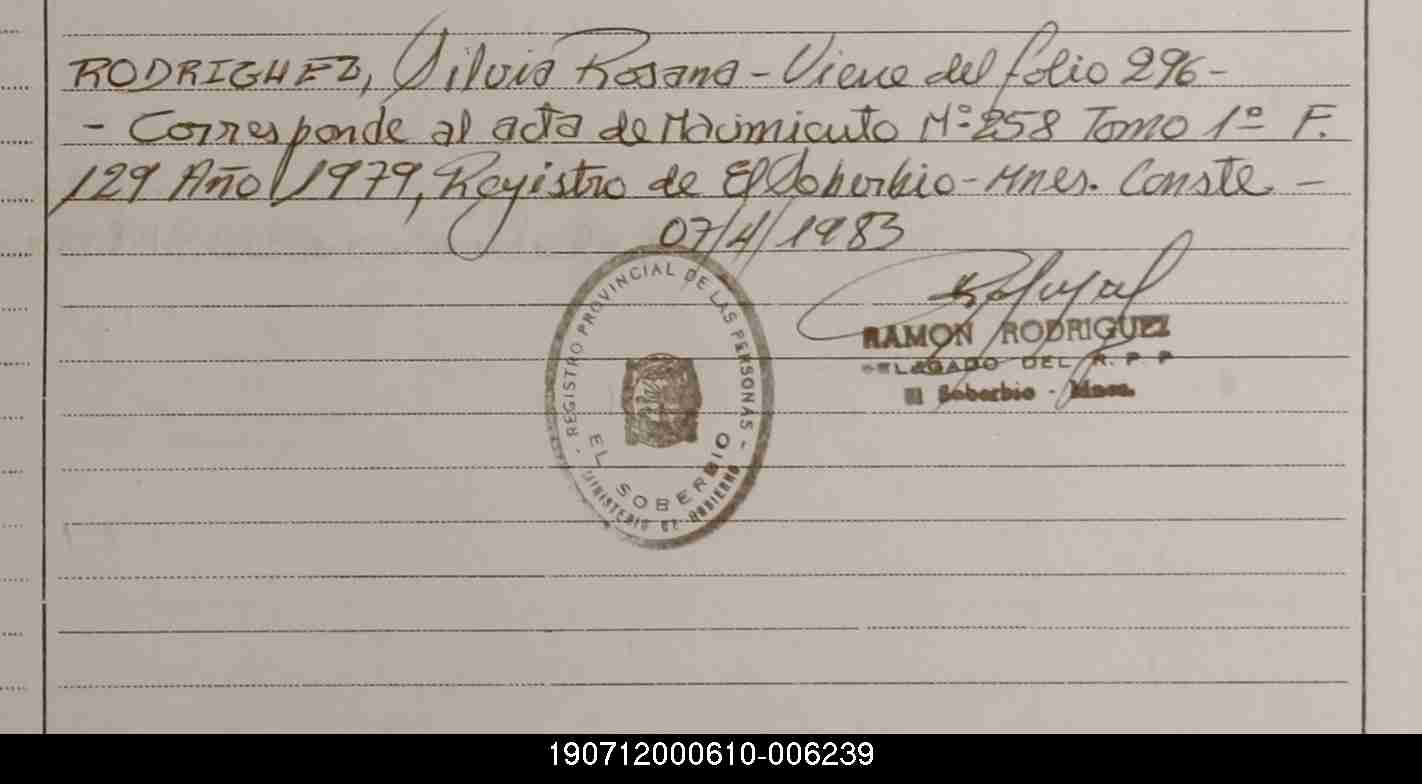 RODRIGUEZ, Silvia Rosana - Viene del folio 296 -
- Corresponde al acta de Nacimiento Nº 258 Tomo 1º F.
129 Año 1979, Registro de El Soberbio - Mnes. Conste -
07/4/1983
- REGISTRO PROVINCIAL DE LAS PERSONAS -
EL SOBERBIO
MINISTERIO DE GOBIERNO
RAMON RODRIGUEZ
DELEGADO DEL R. P. P
El Soberbio - Mnes.
190712000610-006239